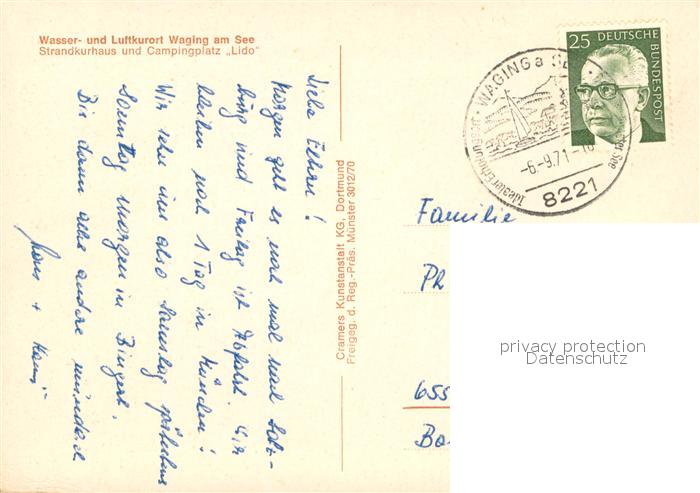 Wasser- und Luftkurort Waging am See
Strandkurhaus und Campingplatz „Lido"
Liebe Eltern!
Morgen geht es noch mal nach Salz-
burg und Freitag ist Abfahrt. Wir
bleiben noch 1 Tag in München!
Wir sehn uns also Samstag spätestens
Sonntag morgen in Bingert.
Bis dann alles andere mündlich
Cramers Kunstanstalt KG. Dortmund
Freigeg. d. Reg.-Präs. Münster 3012/70
25 DEUTSCHE
BUNDESPOST
WAGING a SEE
-6.-9.71-
8221
Familie
Ph
655
Ba
privacy protection
Datenschutz